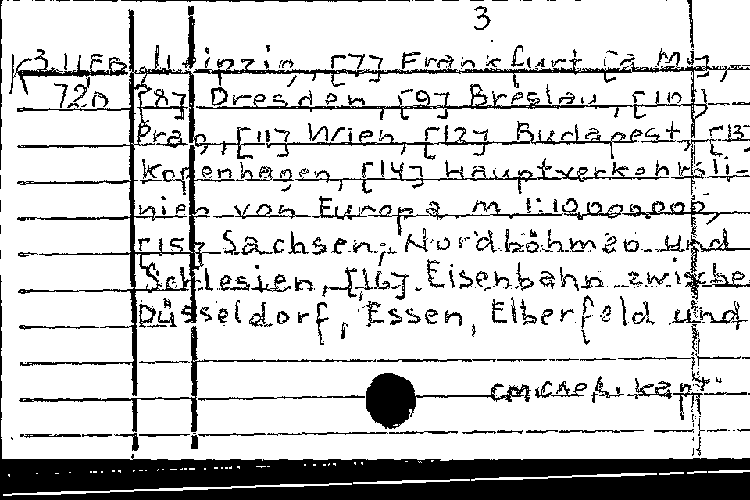 3
Leipzig, [7] Frankfurt [a M.],
72D [8] Dresden, [9] Breslau, [10]
Prag, [11] Wien, [12] Budapest, [13]
Kopenhagen, [14] Hauptverkehrsli-
nien von Europa m. 1:10,000.000,
[15] Sachsen, Nordböhmen und
Schlesien, [16] Eisenbahn zwische
Düsseldorf, Essen, Elberfeld und
см.след. карт.